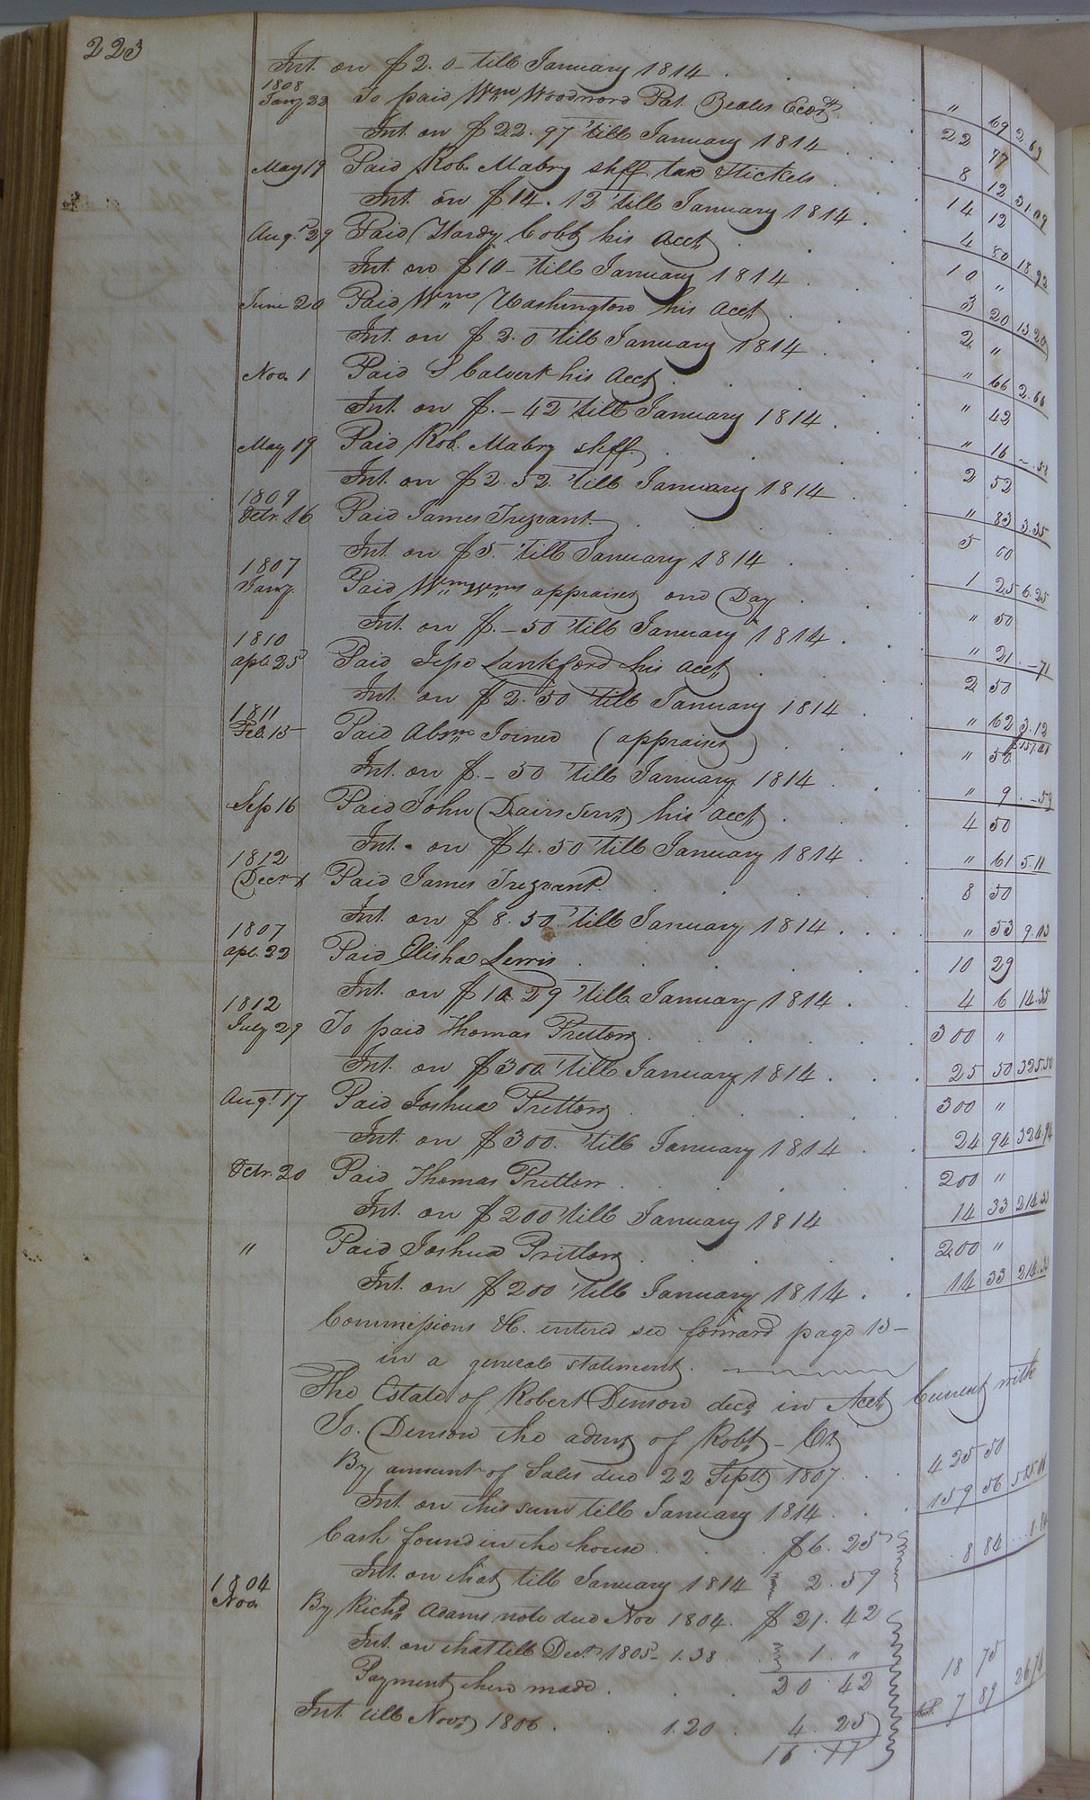 223
Int. on $2.0 till January 1814 " 69 2.69
1808
Jany 22 To paid Wm Woodword Pat. Beales 22 97
Int. on $22.97 till January 1814 8 12 31.09
May 19 Paid Rob. Mabry shff tax tickets 14 12
Int. on $14.12 till January 1814 4 80 18.92
Aug. 29 Paid Hardy Cobb his acct 10 "
Int. on $10 till January 1814 3 20 13.20
June 20 Paid Wm Washington his acct 2 "
Int. on $2.0 till January 1814 " 66 2.66
Nov. 1 Paid S Calvert his acct " 42
Int. on $.-42 till January 1814 " 16 -.58
May 19 Paid Rob. Mabry shff. 2 52
Int. on $2.52 till January 1814 " 83 3.35
1809
Octr. 16 Paid James Trezvant 5 00
Int. on $5. till January 1814 1 25 6.25
1807
Jany. Paid Wm Wms appraiser one Day " 50
Int. on $.-50 till January 1814 " 21 -71
1810
apl. 25 Paid Jesse Lankford his acct 2 50
Int. on $2.50 till January 1814 " 62 3.12
1811
Feb. 15 Paid Absm Joiner (appraiser) " 50
Int. on $.-50 till January 1814 " 9 -.59
Sep 16 Paid John Davis Senr his acct 4 50
Int. on $4.50 till January 1814 " 61 5.11
1812
Decr Paid James Trezvant 8 50
Int. on $8.50 till January 1814 " 53 9.03
1807
apl. 22 Paid Elisha Lewis 10 29
Int. on $10 29 till January 1814 4 6 14.35
1812
July 29 To paid Thomas Pretlow 300 "
Int. on $300 till January 1814 25 50 325.50
Augt. 17 Paid Joshua Pretlow 300 "
Int. on $300. till January 1814 24 94 324.94
Octr. 20 Paid Thomas Pretlow 200 "
Int. on $200 till January 1814 14 33 214.33
" Paid Joshua Pretlow 200 "
Int. on $200 till January 1814 14 33 214.33
Commissions &c. entered see forward page 15
in a general statement.
The Estate of Robert Denson decd in Acct Current with
Jo. Denson the admr of Robt - Cr
By amount of Sales due 22 Septr 1807 425 50
Int. on this sum till January 1814 159 56
Cash found in the house $6.25
Int. on that till January 1814 2.59 8 84
1804
Nov. By Richd Adams note due Nov 1804. $21.42
Int. on that till Decr 1805 1.38 1. "
Payment then made 20.42 18 75
Int. till Novr 1806 1.20 4.25 7 89
16.17